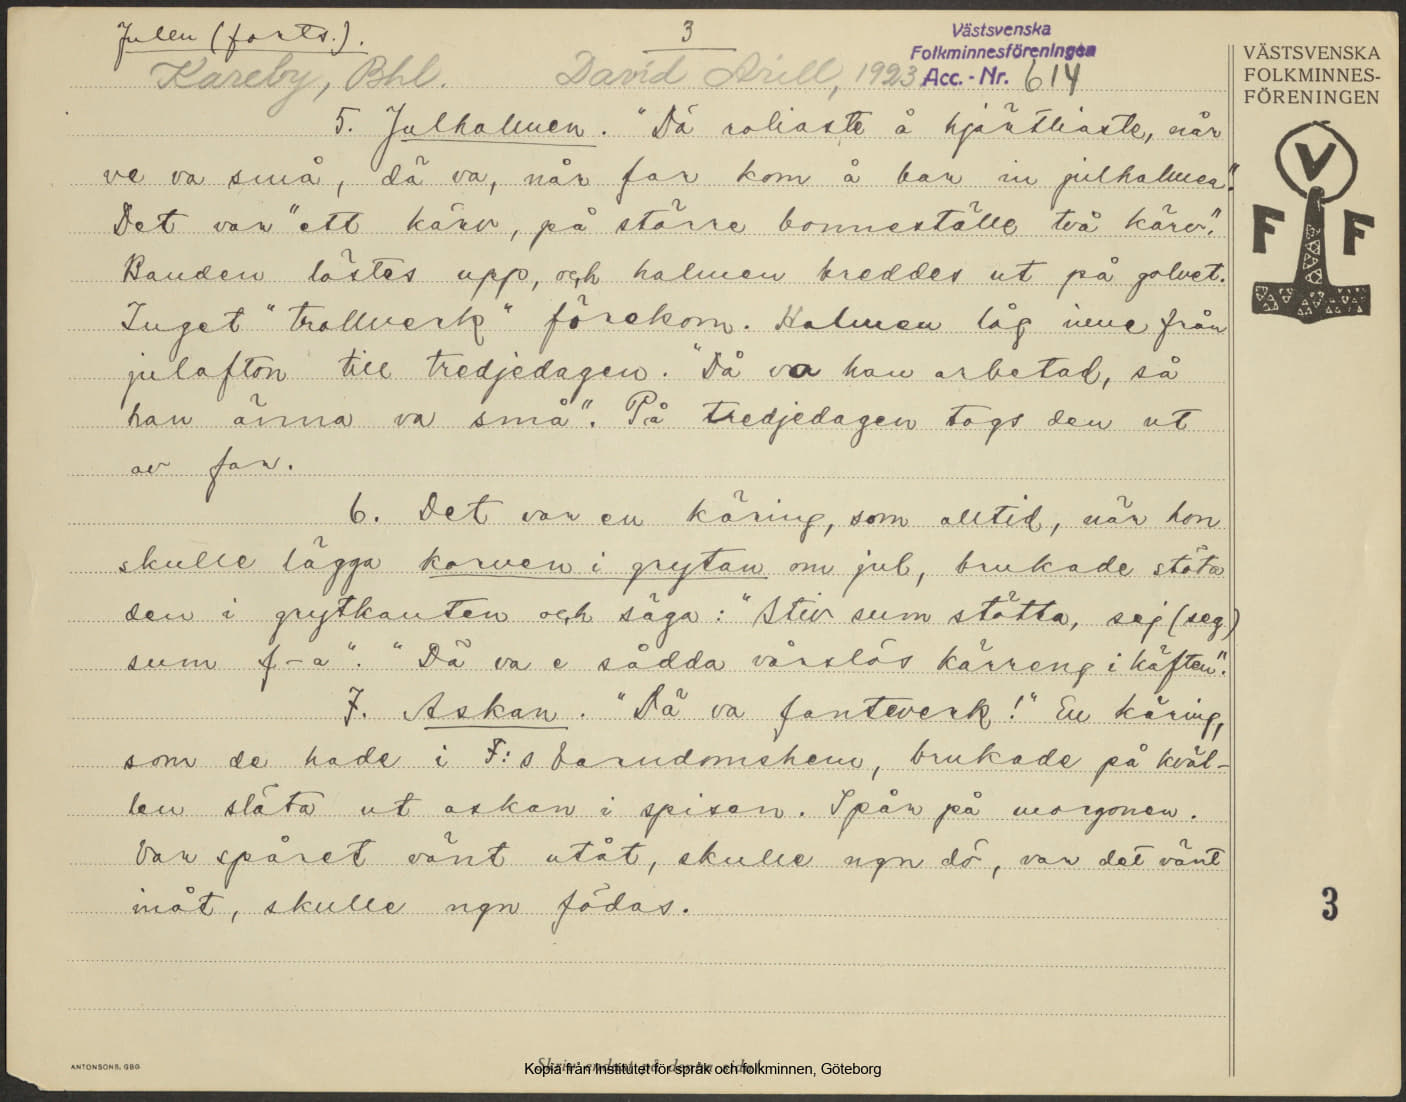 Julen (forts.).
3
Västsvenska
Folkminnesföreningen
Acc.-Nr. 614
Kareby, Bhl. David Arill, 1923
VÄSTSVENSKA
FOLKMINNES-
FÖRENINGEN
V
F F
5. Julhalmen. "Dä roliaste å hjärtliaste, når
ve va små, dä va, når far kom å bar in julhalmen".
Det var "ett kärv, på större bonneställe två kärv".
Banden löstes upp, och halmen breddes ut på golvet.
Inget "trollverk" förekom. Halmen låg inne från
julafton till tredjedagen. "Då va han arbetad, så
han änna va små". På tredjedagen togs den ut
av far.
6. Det var en käring, som alltid, när hon
skulle lägga korven i grytan om jul, brukade stöta
den i grytkanten och säga: "Stiv sum stötta, sej (seg)
sum f-a". "Dä va e sådda vårslös kärreng i käften".
7. Askan. "Dä va fanteverk!" En käring,
som de hade i F:s barndomshem, brukade på kväl-
len släta ut askan i spisen. Spår på morgonen.
Var spåret vänt utåt, skulle ngn dö, var det vänt
inåt, skulle ngn födas.
3
ANTONSONS, GBG
Skriv endast på denna sida!
Kopia från Institutet för språk och folkminnen, Göteborg